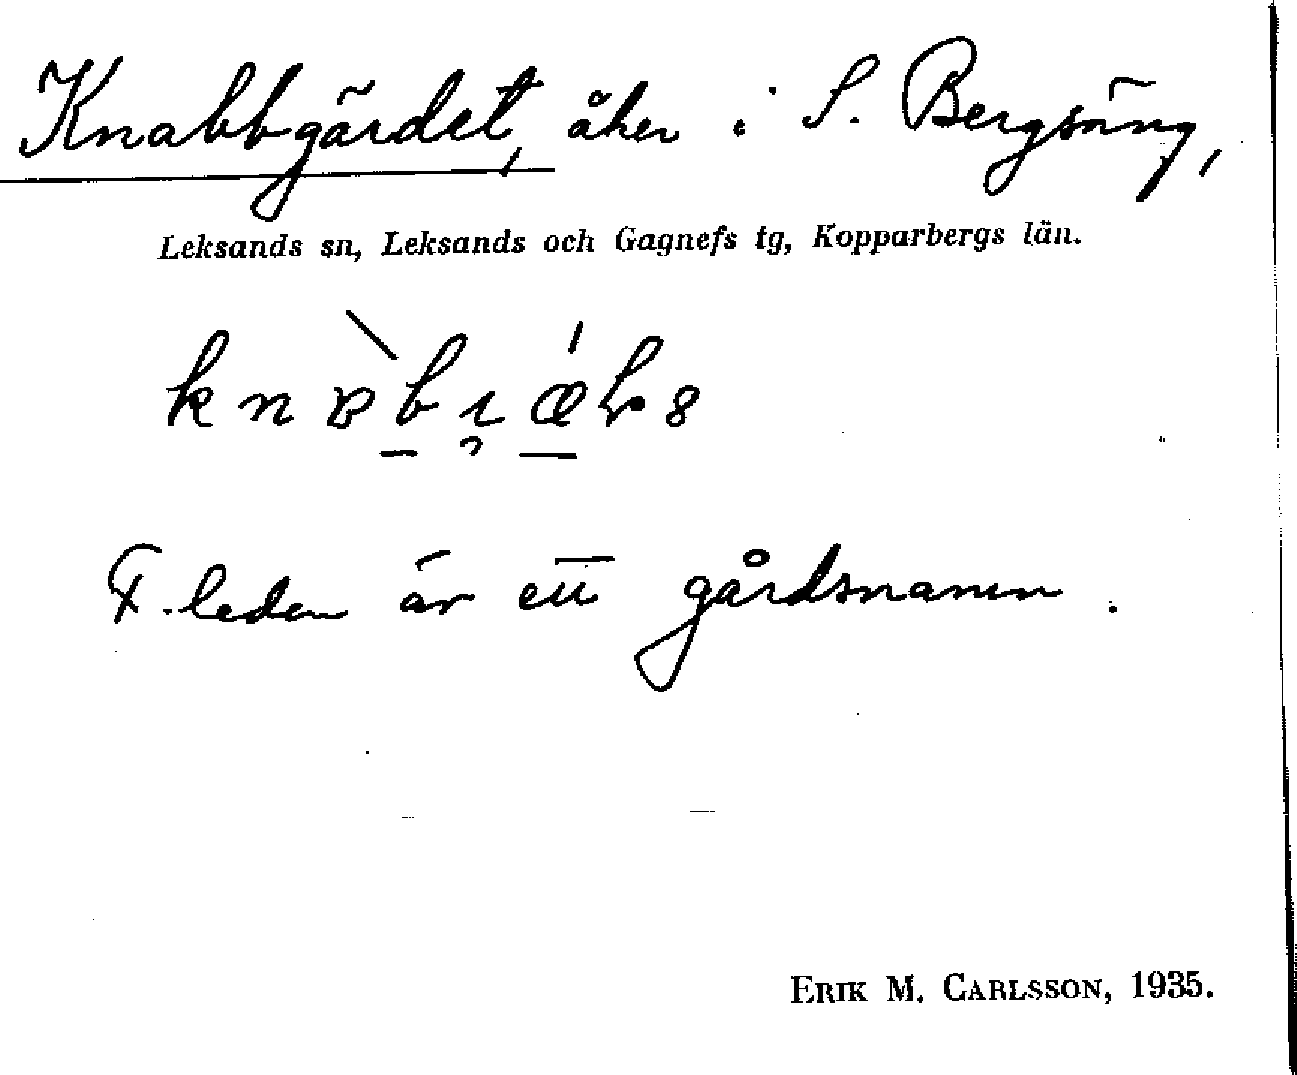 Knabbgärdet, åker i S. Bergsäng,
Leksands sn, Leksands och Gagnefs tg, Kopparbergs län.
F.leden är ett gårdsnamn.
ERIK M. CARLSSON, 1935.